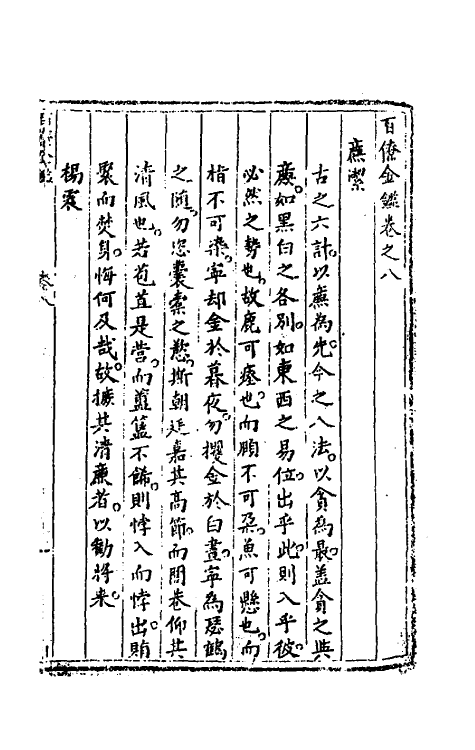 百僚金鑑卷之八
廉潔
古之六計。以廉為先。今之八法。以貪為最。盖貪之與
廉。如黑白之各別。如東西之易位。出乎此。則入乎彼。
必然之勢也。故鹿可瘞也。而頤不可朶。魚可懸也。而
指不可染。寧却金於暮夜。勿攫金於白晝。寧為琴鶴
之隨。勿恣囊橐之慾。斯朝廷嘉其高節。而閭巷仰其
清風也。若苞苴是營。而簠簋不餙。則悖入而悖出。賄
聚而焚身。悔何及哉。故摭其清廉者。以勸將来。
楊震
卷八